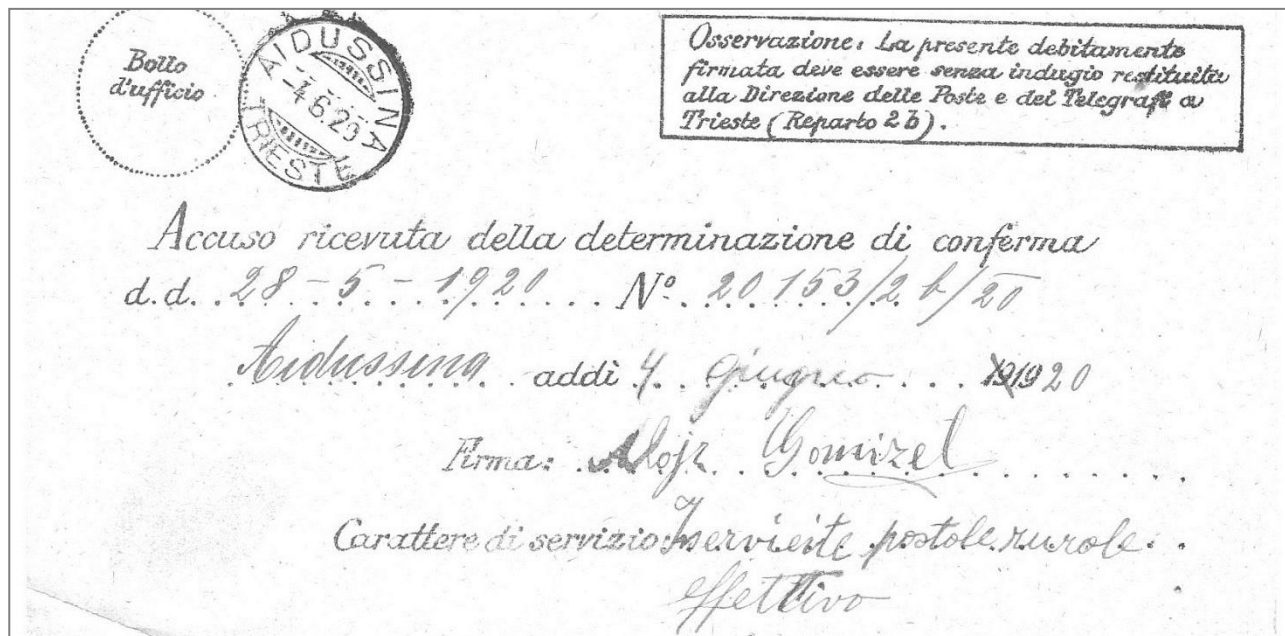 Bollo
d'ufficio
AIDUSSINA
4.6.20
TRIESTE
Osservazione: La presente debitamente
firmata deve essere senza indugio restituita
alla Direzione delle Poste e dei Telegrafi a
Trieste (Reparto 2 b).
Accuso ricevuta della determinazione di conferma
d.d. 28 - 5 - 1920 Nº 20153/2 b/20
Aidussina addì 4. giugno 1920
Firma: Alojz Gomizel
Carattere di servizio: Inserviente postale rurale
effettivo